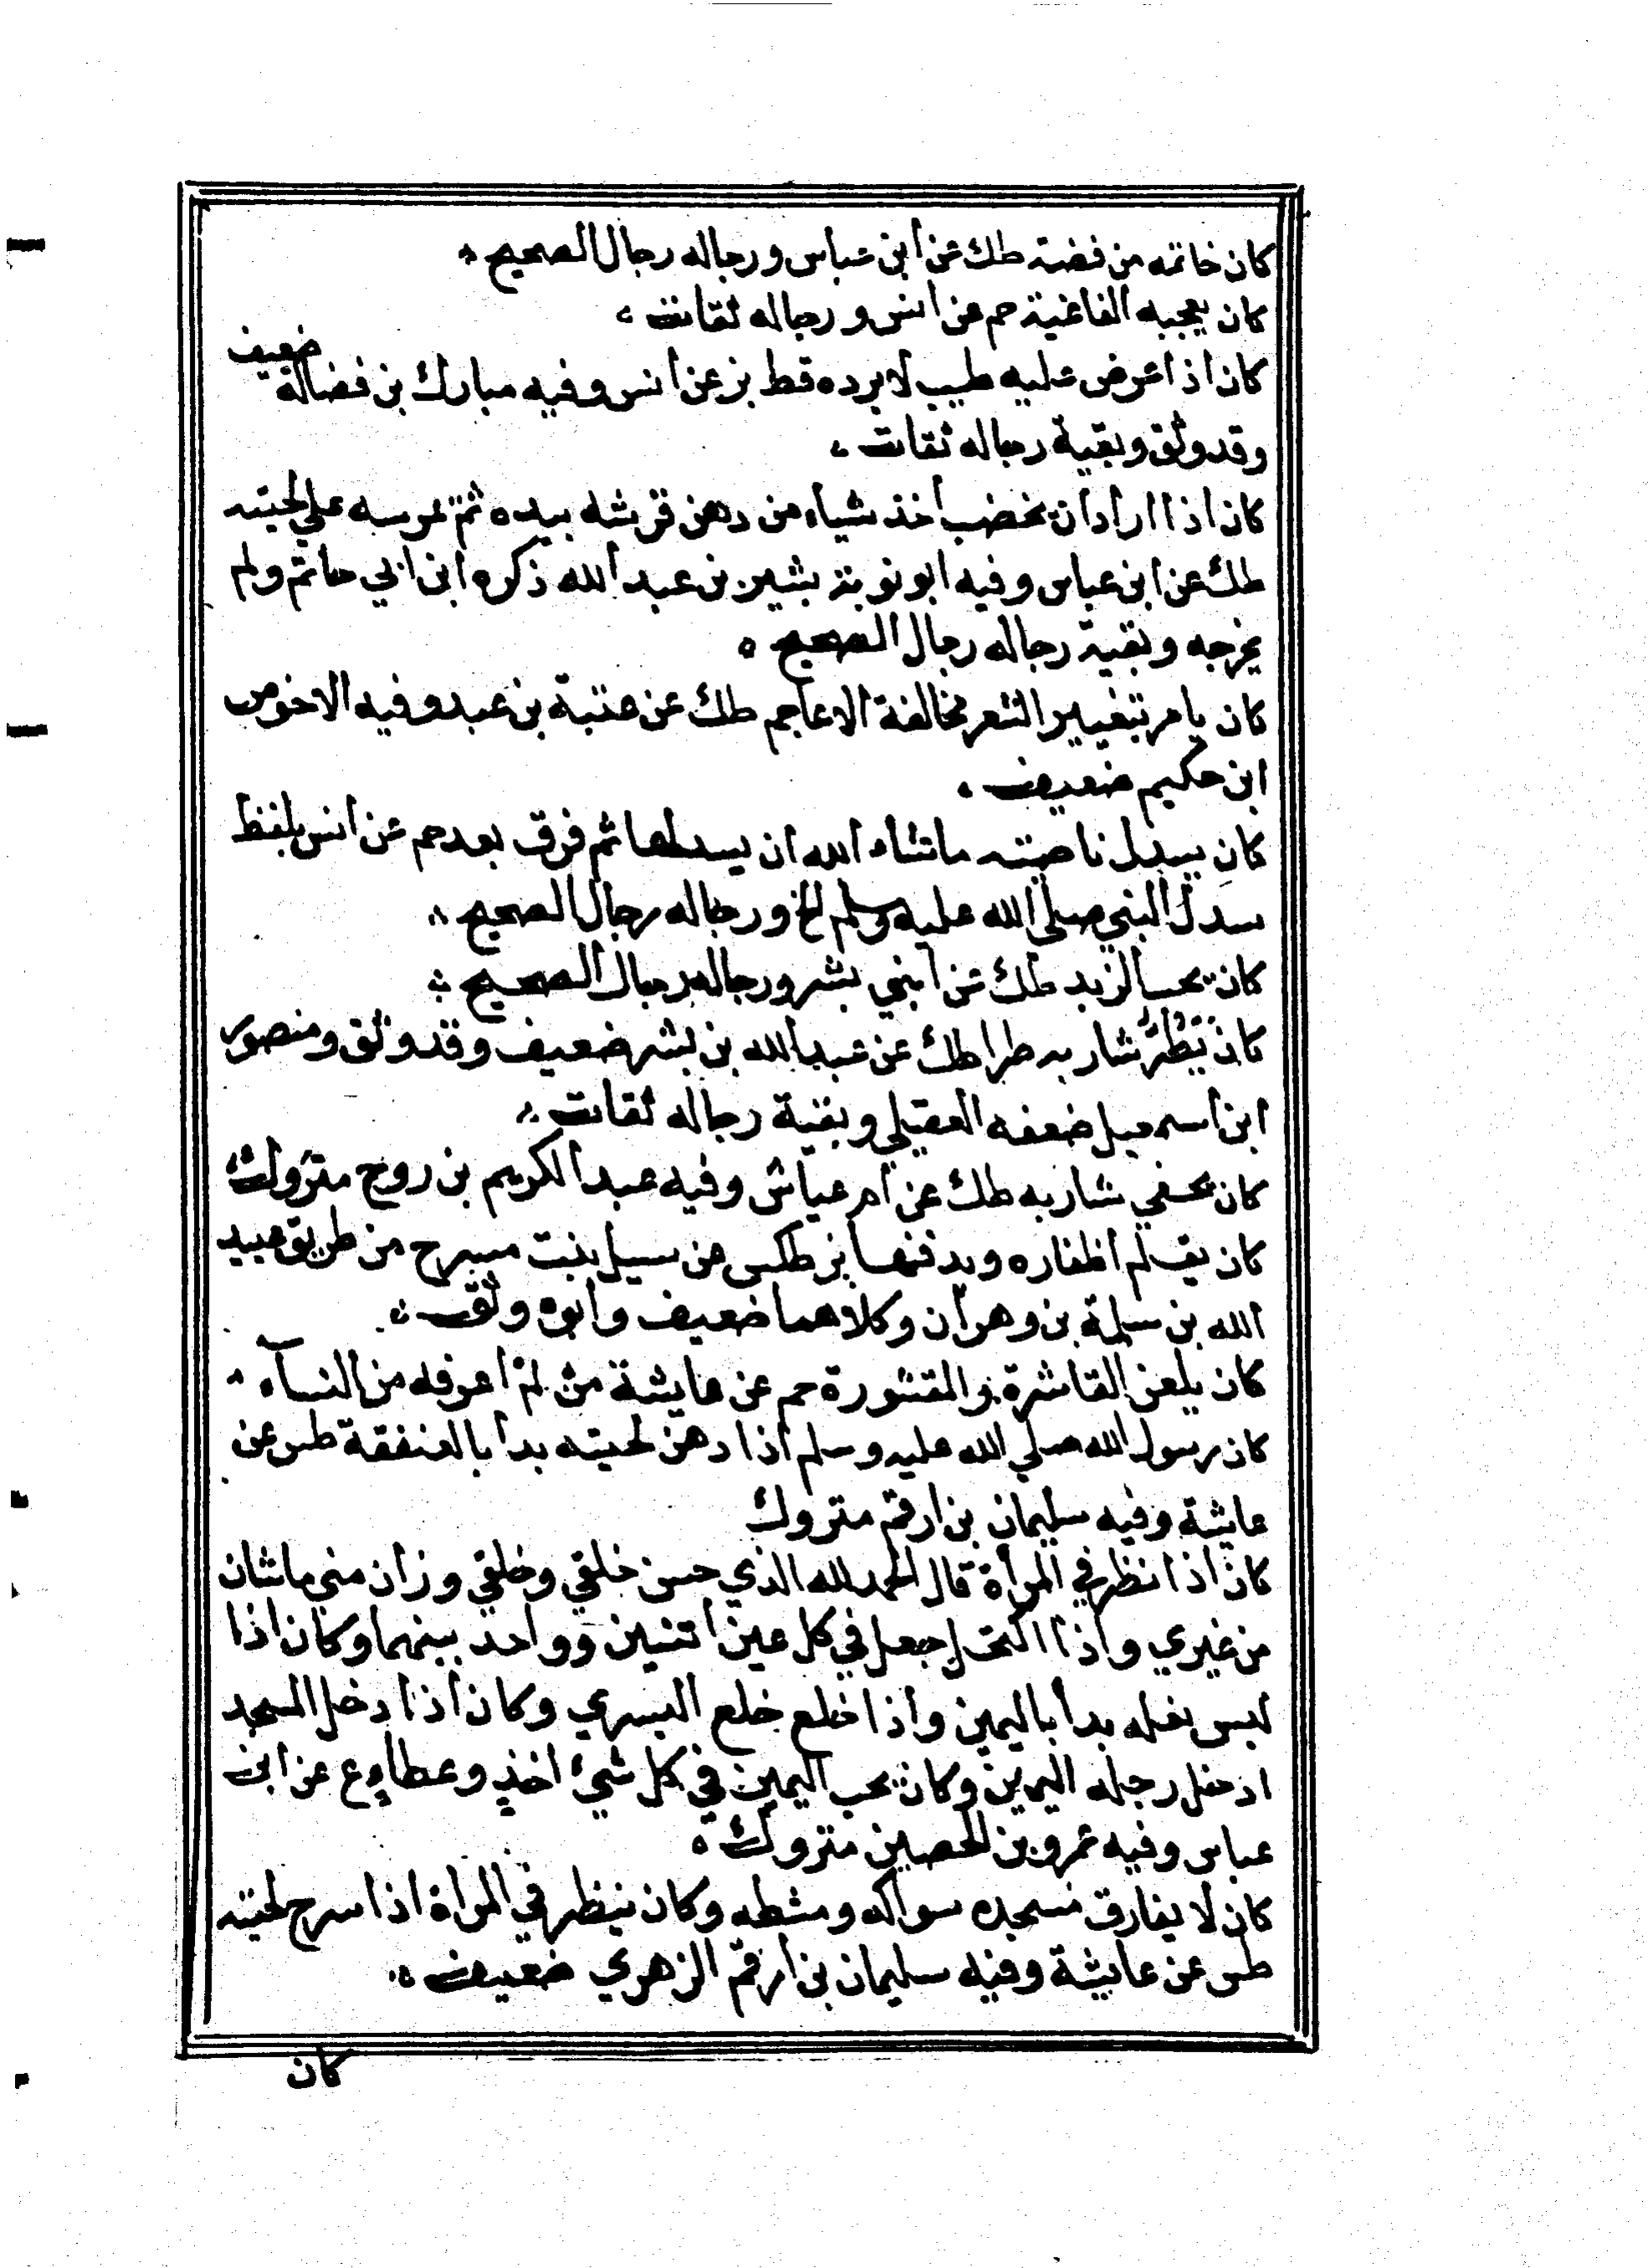 كان خاتمه من فضة طك عن ابن عباس ورجاله رجال الصحيح
كان يعجبه الفاغية حم عن انس ورجاله ثقات
كان اذا عرض عليه طيب لا يرده قط بز عن انس وفيه مبارك بن فضالة ضعيف
وقد وثق وبقية رجاله ثقات
كان اذا اراد ان يخضب أخذ شياء من دهن فرشه بيده ثم عرسه علي لحيته
طك عن ابن عباس وفيه ابو نوبة بشير بن عبد الله ذكره ابن ابي حاتم ولم
يخرجه وبقية رجاله رجال الصحيح
كان يامر بتغيير الشعر مخالفة الاعاجم طك عن عتبة بن عبد وفيه الاخوص
ابن حكيم ضعيف
كان يسدل ناصيته ماشاء الله ان يسدلها ثم فرق بعد حم عن انس بلفظ
سدل النبي صلى الله عليه وسلم الخ ورجاله رجال الصحيح
كان يحب الزبد طك عن ابني بشر ورجاله رجال الصحيح
كان يطر شاربه طرا طك عن عبد الله بن بشر ضعيف وقد وثق ومنصور
ابن اسمعيل ضعفه العقيلي وبقية رجاله ثقات
كان يحفي شاربه طك عن ام عياش وفيه عبد الكريم بن روح متروك
كان يقلم اظفاره ويدفنها بز طكس من سيل بنت مسرح من طريق عبيد
الله بن سلمة بن وهران وكلاهما ضعيف وابوه وثق
كان يلعن القاشرة والمقشورة حم عن عايشة من لم اعرفه من النساء
كان رسول الله صلي الله عليه وسلم اذا دهن لحيته بدا بالعنفقة طس عن
عايشة وفيه سليمان بن ارقم متروك
كان اذا نظر في المراة قال الحمد لله الذي حسن خلقي وخلقي وزان مني ماشان
من غيري واذا اكتحل جعل في كل عين اثنين وواحد بينهما وكان اذا
لبس نعله بدأ باليمين واذا خلع خلع اليسري وكان اذا دخل المسجد
ادخل رجله اليمين وكان يحب اليمين في كل شيئ اخذ وعطاء ع عن ابن
عباس وفيه عمرو بن الحصين متروك
كان لا يفارق مسجده سواكه ومشطه وكان ينظر في المراة اذا سرح لحيته
طس عن عايشة وفيه سليمان بن ارقم الزهري ضعيف
كان